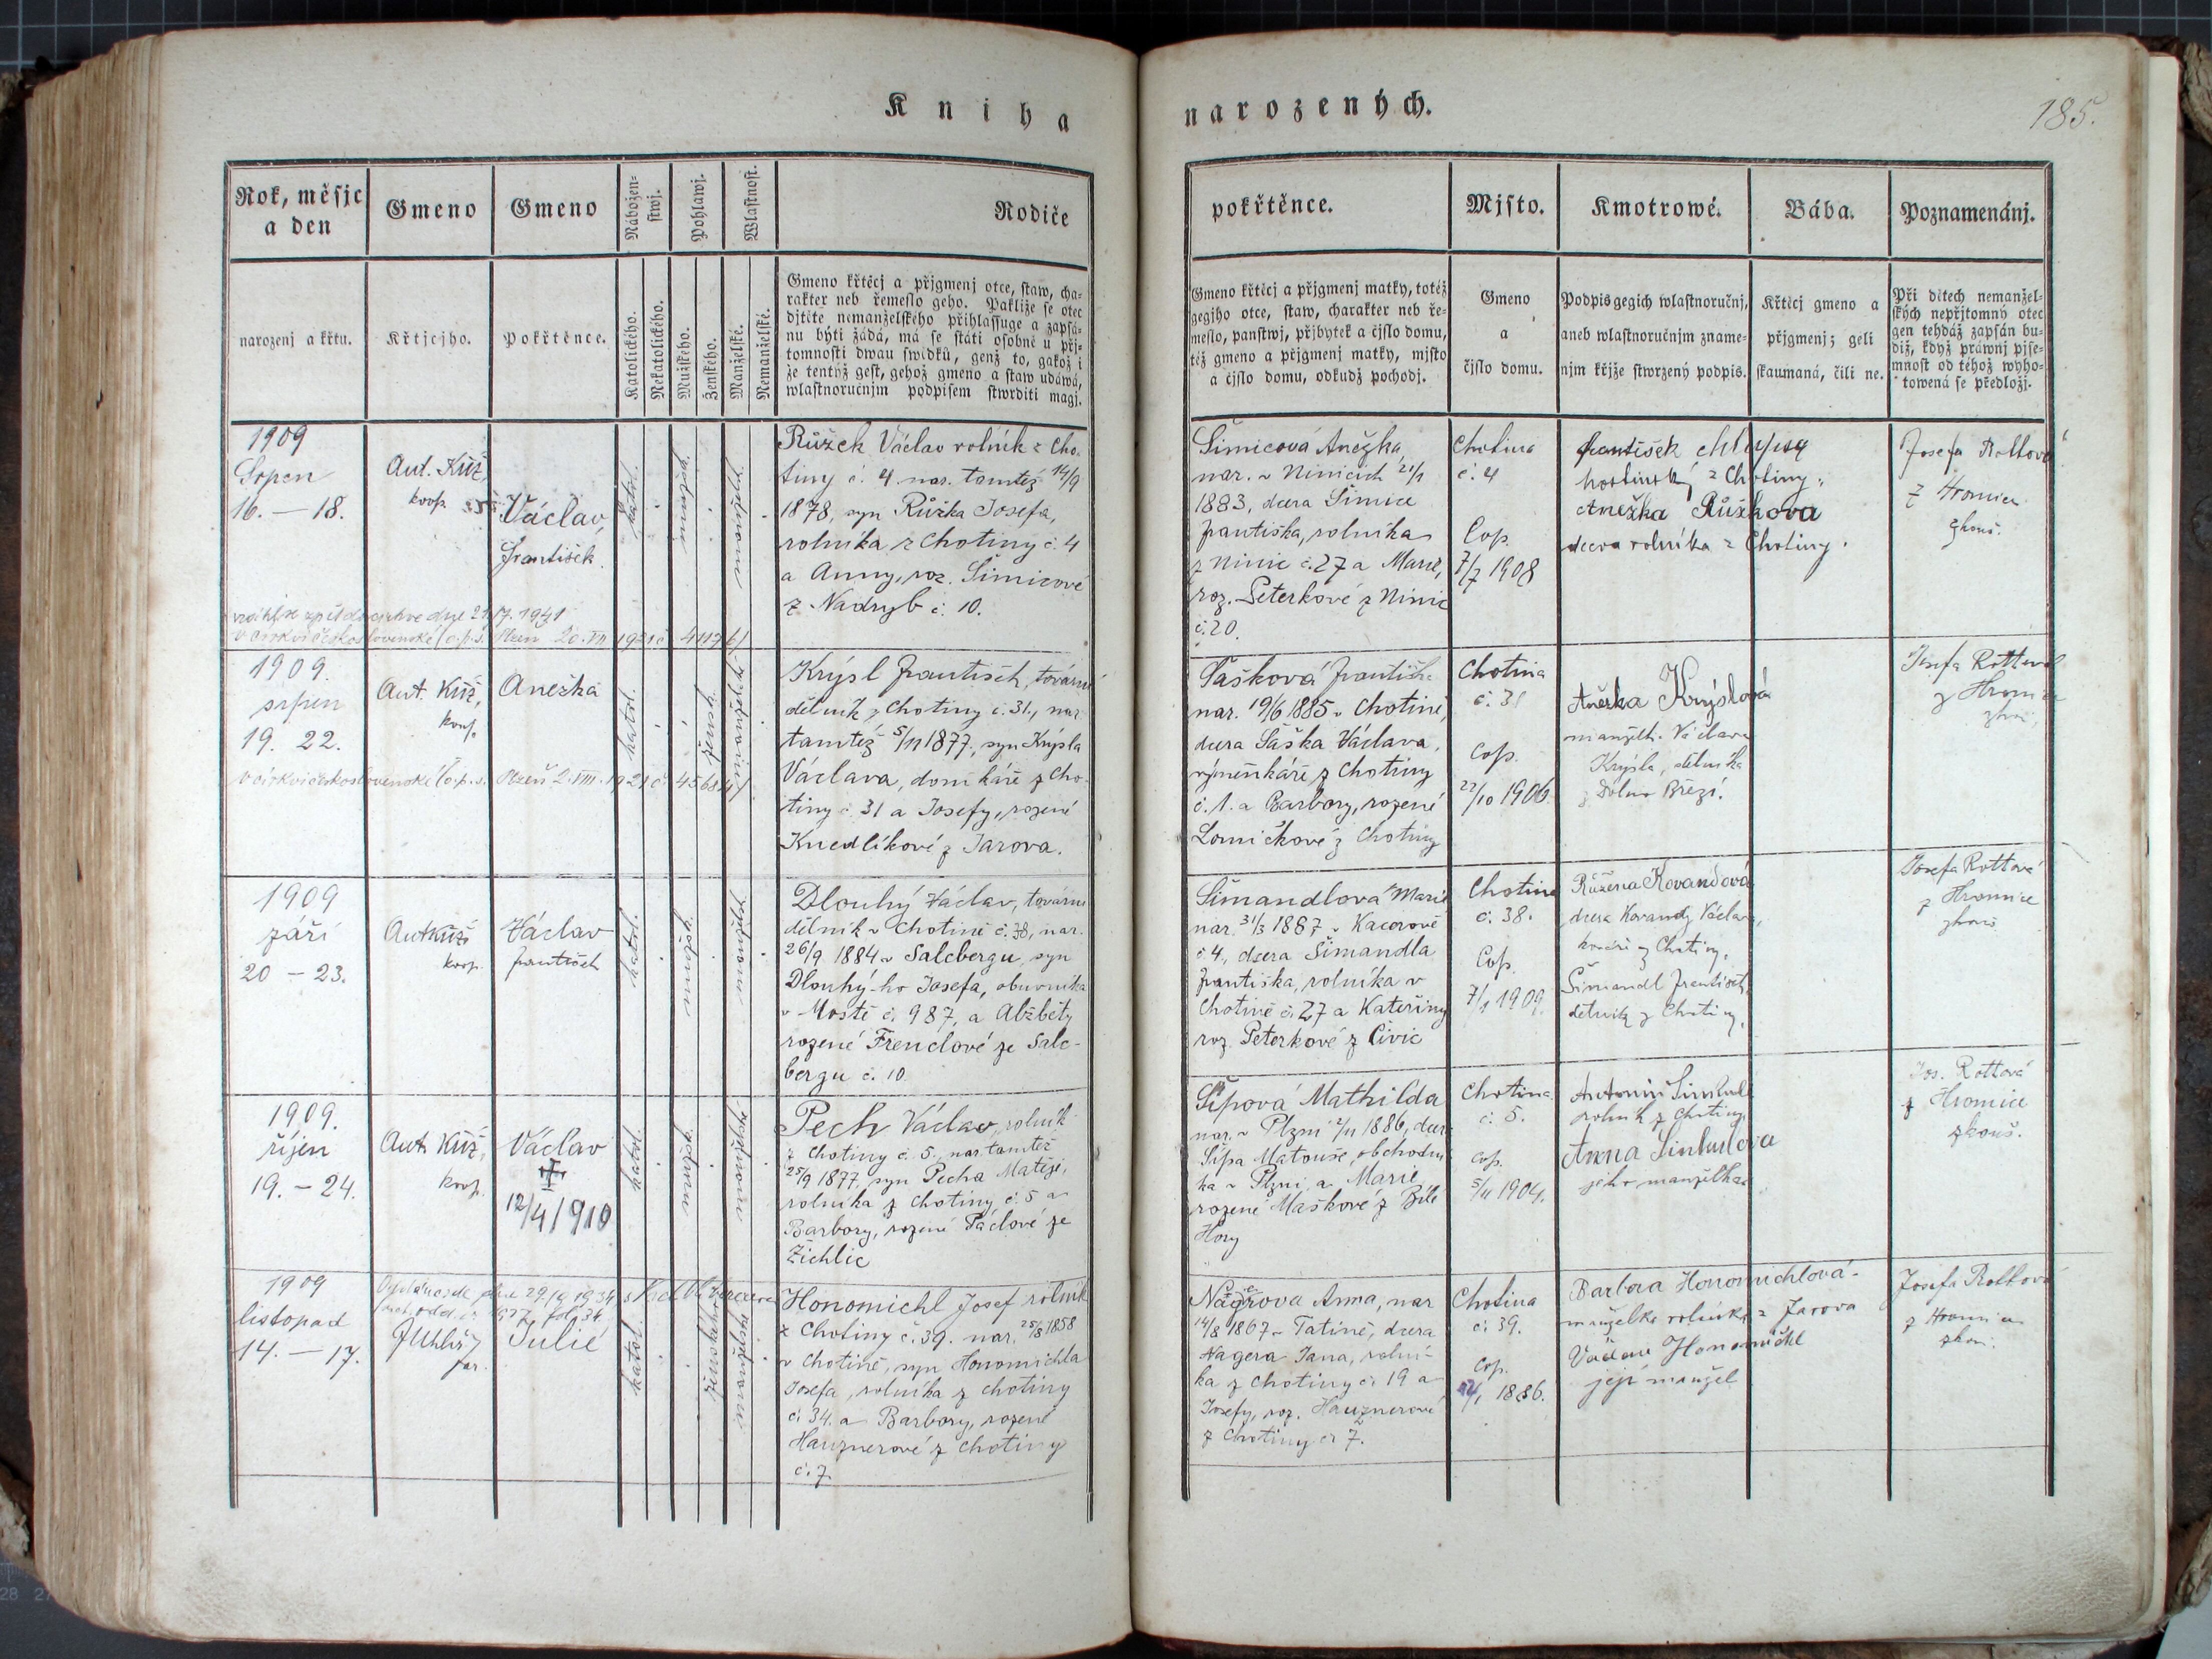 Kniha
narozených.
185.
Rok, měsjc
a den
Gmeno
Gmeno
Nábožen-
stwj.
Pohlawj.
Wlastnost.
Rodiče
narozenj a křtu.
Křtjcjho.
Pokřtěnce.
Katolického.
Nekatolického.
Mužského.
Ženského.
Manželské.
Nemanželské.
Gmeno křtěcj a přjgmenj otce, staw, cha-
rakter neb řemeslo geho. Pakliže se otec
djtěte nemanželského přihlassuge a zapsá-
nu býti žádá, má se státi osobně u přj-
tomnosti dwau swědků, genž to, gakož i
že tentýž gest, gehož gmeno a staw udáwá,
wlastnoručnjm podpisem stwrditi magj.
pokřtěnce.
Mjsto.
Kmotrowé.
Bába.
Poznamenánj.
Gmeno křtěcj a přjgmenj matky, totéž
gegjho otce, staw, charakter neb ře-
meslo, panstwj, přjbytek a čjslo domu,
též gmeno a přjgmenj matky, mjsto
a čjslo domu, odkudž pochodj.
Gmeno
a
čjslo domu.
Podpis gegich wlastnoručnj,
aneb wlastnoručnjm zname-
njm křjže stwrzený podpis.
Křtěcj gmeno a
přjgmenj; geli
skaumaná, čili ne.
Při dětech nemanžel-
ských nepřjtomný otec
gen tehdáž zapsán bu-
diž, když práwnj pjse-
mnost od téhož wyho-
towená se předložj.
1909
Srpen
16. — 18.
Ant. Kříž,
koop.
Václav,
František.
katol.
Růžek Václav rolník z Cho-
tiny č. 4 nar. tamtéž 14/9
1878, syn Růžka Josefa,
rolníka z Chotiny č. 4
a Anny, roz. Šimicové
z Nadryb č. 10.
Šimicová Anežka,
nar. v Ninicích 21/1
1883, dcera Šimice
Františka, rolníka
z Ninic č. 27 a Marie,
roz. Peterkové z Ninic
č. 20.
Chotina
č. 4
Cop.
7/7 1908
František
hostinský z Chotiny,
Anežka Růžkova
dcera rolníka z Chotiny.
Josefa Rottová
z Hromice
zkouš.
1909.
srpen
19. 22.
Ant. Kříž,
koop.
Anežka
katol.
žensk.
Krýsl František, tovární
dělník z Chotiny č. 31, nar.
tamtéž 5/11 1877, syn Krýsla
Václava, domkáře z Cho-
tiny č. 31 a Josefy, rozené
Knedlíkové z Jarova.
Šašková Františka
nar. 19/6 1885 v Chotině,
dcera Šaška Václava,
výměnkáře z Chotiny
č. 1. a Barbory, rozené
Lomičkové z Chotiny
Chotina
č. 31
Cop.
22/10 1906.
Anežka Krýslová
manželk. Václava
Krýsla, dělníka
z Dolan Březí.
Josefa Rottová
z Hromice
1909
září
20 — 23.
Ant Kříž
koop.
Václav
František
katol.
Dlouhý Václav, tovární
dělník v Chotině č. 38, nar.
26/9 1884 v Salcbergu, syn
Dlouhý-ho Josefa, obuvníka
v Mostě č. 987, a Alžběty
rozené Frendlové ze Salc-
bergu č. 10
Šimandlová Marie
nar. 31/3 1887 v Kacerově
č. 4, dcera Šimandla
Františka, rolníka v
Chotině č. 27 a Kateřiny
roz. Peterkové z Čivic
Chotina
č. 38.
Cop.
7/1 1909.
Růžena Kovandová
dcera Kovandy Václava,
kováře z Chotiny,
Šimandl František,
dělník z Chotiny.
Josefa Rottová
z Hromice
zkouš.
1909.
říjen
19. — 24.
Ant. Kříž,
koop.
Václav
12/4 1910
katol.
Pech Václav, rolník
z Chotiny č. 5., nar. tamtéž
25/9 1877, syn Pecha Matěje,
rolníka z Chotiny č. 5 a
Barbory, rozené Páclové ze
Žichlic
Šípová Mathilda
nar. v Plzni 2/11 1886, dcera
Šípa Matouše, obchodní-
ka v Plzni a Marie,
rozené Maškové z Bílé
Hory
Chotina
č. 5.
Cop.
5/11 1904.
Antonín
rolník z Chotiny
Anna
jeho manželka
Jos. Rottová
z Hromice
zkouš.
1909
listopad
14. — 17.
far.
Julie
katol.
Honomichl Josef rolník
z Chotiny č. 39. nar. 25/8 1858
v Chotině, syn Honomichla
Josefa, rolníka z Chotiny
č. 34. a Barbory, rozené
Hauznerové z Chotiny
č. 7.
Nágrová Anna, nar
14/8 1867 v Tatině, dcera
Nagera Jana, rolní-
ka z Chotiny č. 19 a
Josefy, roz. Hauznerové
z Chotiny č. 7.
Chotina
č. 39.
Cop.
1886.
Barbora Honomichlová
manželka rolníka z Jarova
Václav Honomichl
její manžel
Josefa Rottová
z Hromice